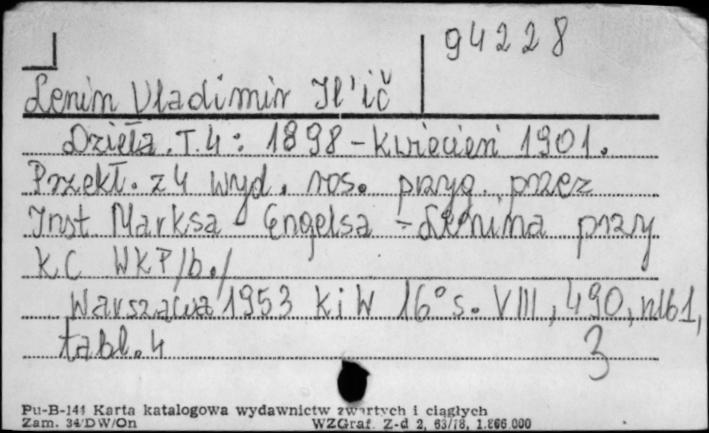 94228
Lenin Vladimir Il'ič
Dzieła. T.4: 1898 - kwiecień 1901.
Przekł. z 4 wyd. ros. przyg. przez
Inst Marksa - Engelsa - Lenina przy
KC WKP/b./
Warszawa 1953 KiW 16° s. VIII, 490, nlb1,
tabl. 4
3
Pu-B-144 Karta katalogowa wydawnictw zwartych i ciągłych
Zam. 34/DW/On WZGraf. Z-d 2, 63/78, 1.866 000